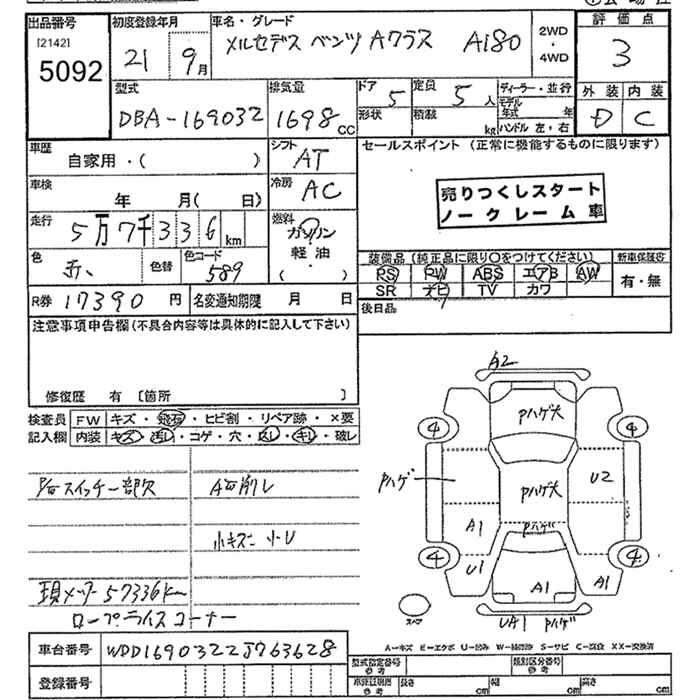 出品番号 初度登録年月 車名・グレード 2WD・4WD 評価点
[2142] 5092 21 9月 メルセデス ベンツ Aクラス A180 3
型式 排気量 ドア 定員 ディーラー・並行 外装 内装
DBA-169032 1698cc 5 5人 モデル年式 年 D C
形状 積載 kg ハンドル 左・右
車歴 シフト セールスポイント(正常に機能するものに限ります)
自家用・( ) AT
車検 冷房
年 月( 日) AC
売りつくしスタート
ノークレーム車
走行 燃料
5万7千336km ガソリン
軽油
・( )
色 色替 色コード
赤、 589
装備品(純正品に限り○をつけてください) 新車保証書
PS PW ABS エアB AW 有・無
SR ナビ TV カワ
R券 17390円 名変通知期限 月 日
後日品
注意事項申告欄(不具合内容等は具体的に記入して下さい)
修復歴 有〔箇所 〕
検査員 FW キズ・飛石・ヒビ割・リペア跡・×要
記入欄 内装 キズ・汚レ・コゲ・穴・スレ・キレ・破レ
スイッチ一部欠 A石削レ
小キズ 小U
現メーター57336km
ロープライスコーナー
A2
Pハゲ大
4 4
Pハゲ Pハゲ大 U2
A1 Pハゲ
4 4
U1 A1 A1
スペア UA1 Pハゲ
A=キズ E=エクボ U=凹み W=補修跡 S=サビ C=腐食 XX=交換済
車台番号 WDD1690322J763628
型式指定番号 参考 類別区分番号 参考
登録番号
車検証明書 参考 長さ cm 幅 cm 高さ cm